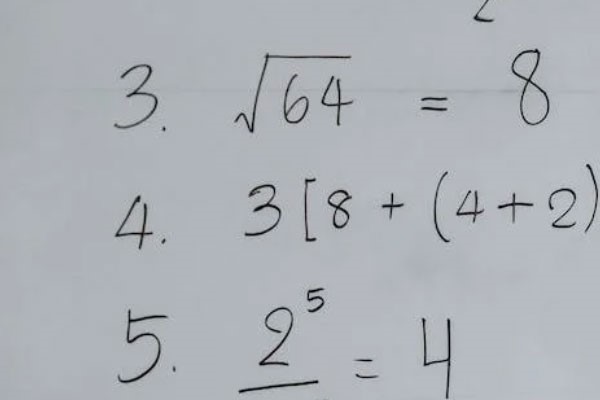 3. √64 = 8
4. 3[8 + (4+2)
5. 2⁵ = 4